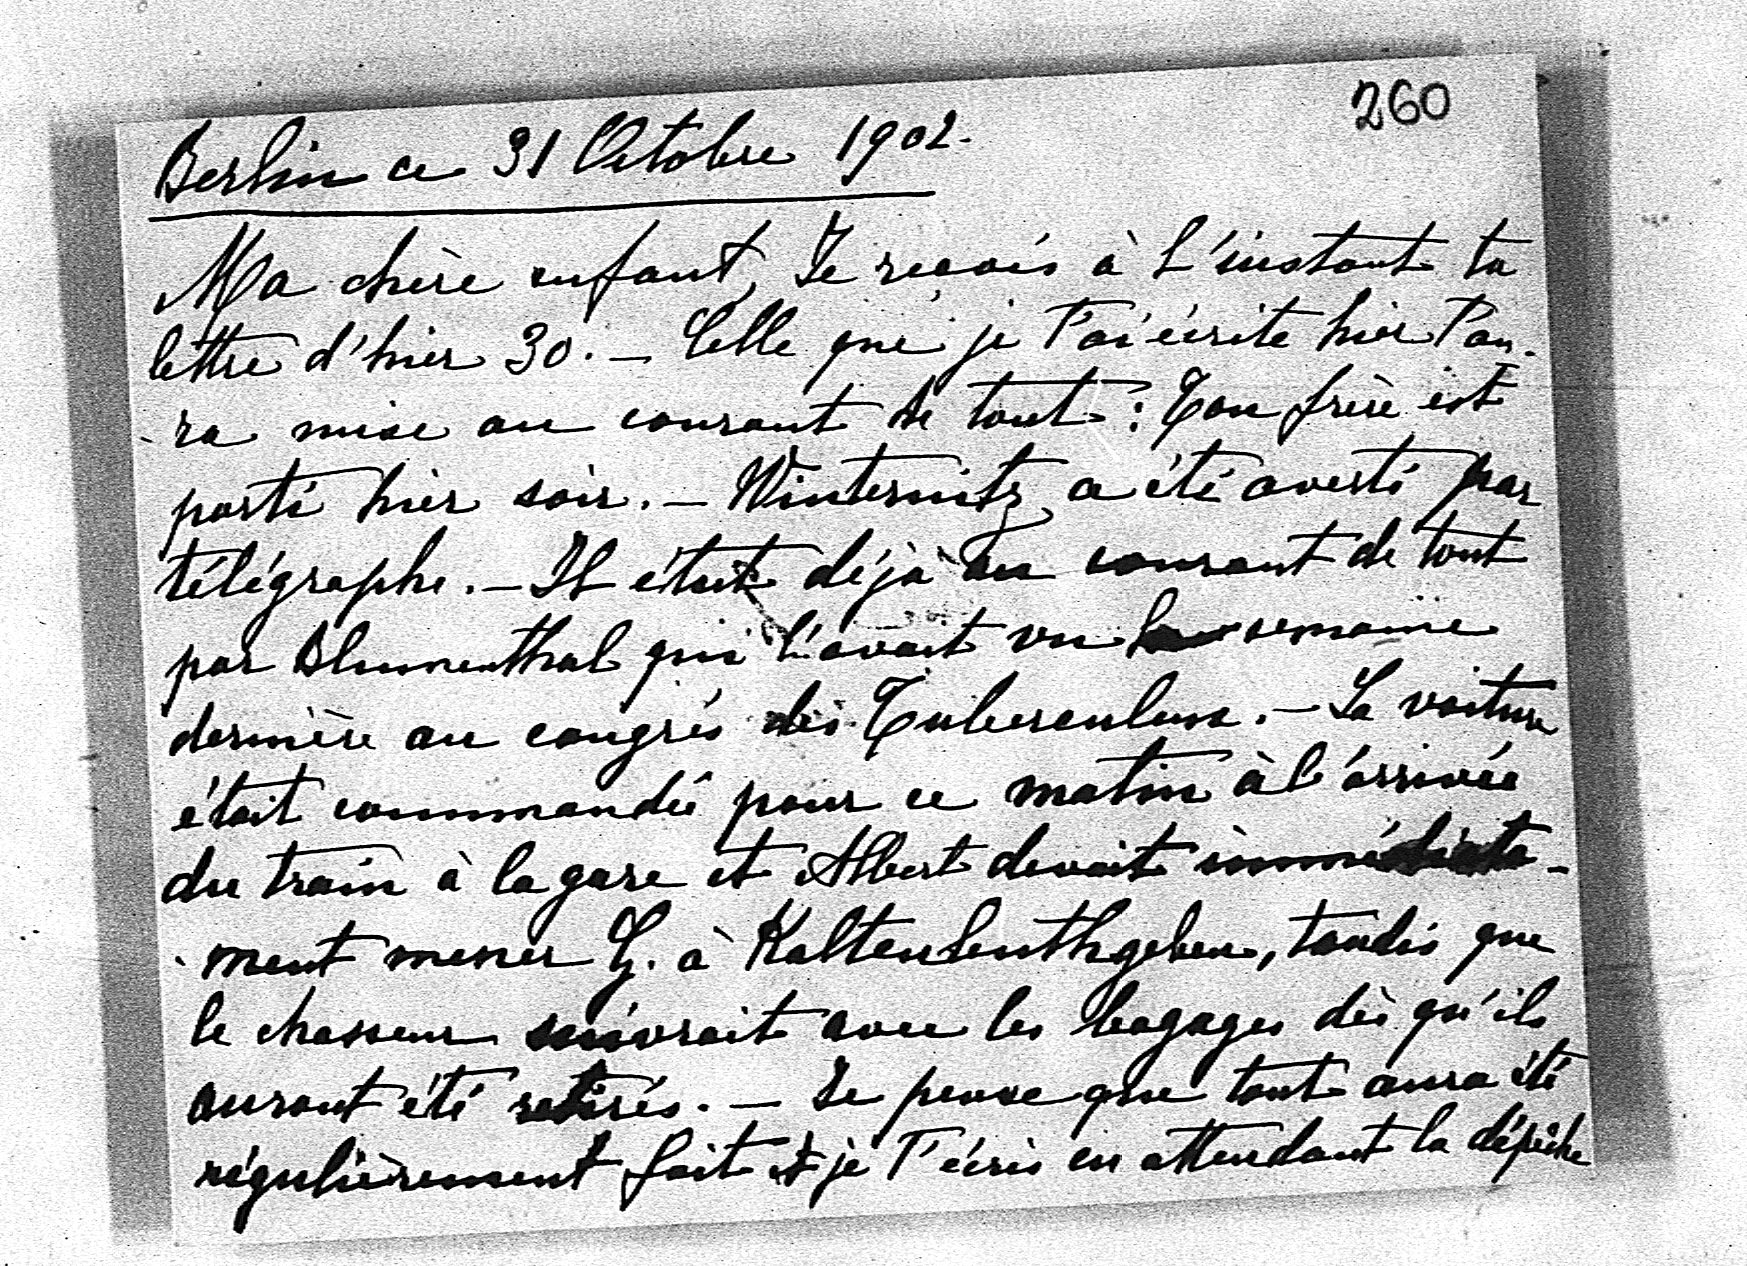 260
Berlin ce 31 Octobre 1902.
Ma chère enfant, Je reçois à l'instant ta
lettre d'hier 30. — Celle que je t'ai écrite hier t'au-
-ra mise au courant de tout : Ton frère est
parti hier soir. — Winternitz a été averti par
télégraphe. — Il était déjà au courant de tout
par Blumenthal qui l'avait vu la semaine
dernière au congrès des Tuberculeux. — La voiture
était commandée pour ce matin à l'arrivée
du train à la gare et Albert devait immédiate-
-ment mener G. à Kaltenleuthgeben, tandis que
le chasseur suivrait avec les bagages dès qu'ils
auront été retirés. — Je pense que tout aura été
régulièrement fait et je t'écris en attendant la dépêche